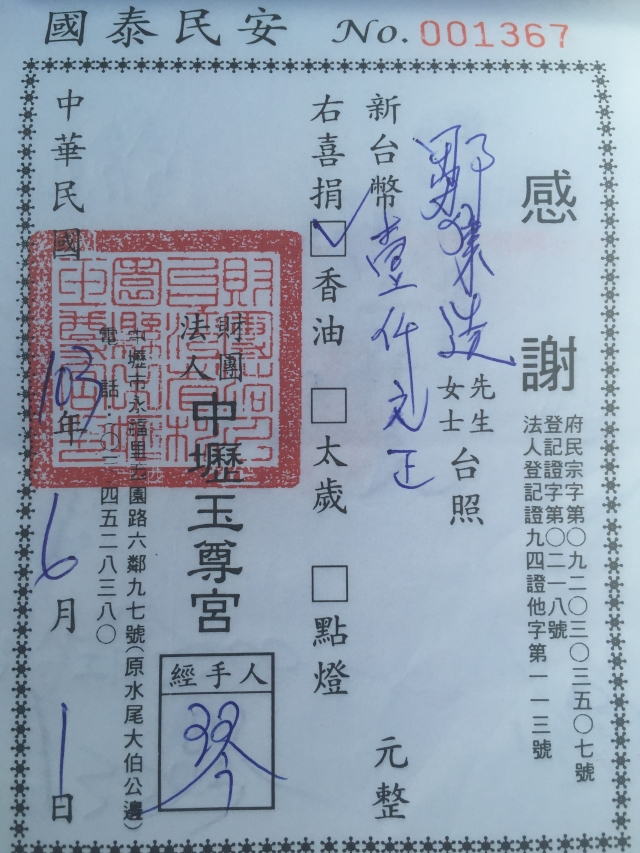 國泰民安 No. 001367
感謝
府民宗字第〇九二〇三〇三五〇七號
登記證字第〇二一八號
法人登記證九四證他字第一一三號
先生
女士 台照
新台幣壹仟元正 元整
右喜捐 ☑香油 □太歲 □點燈
財團
法人 中壢玉尊宮
經手人
琴
電話:(〇三)四五二八三八〇
中華民國103年6月1日